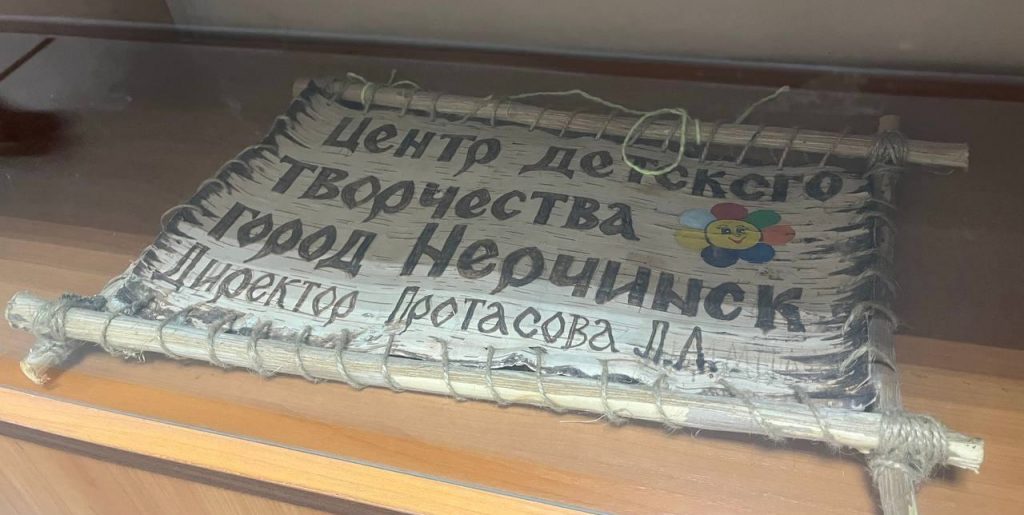 Центр детского
творчества
город Нерчинск
Директор Протасова Л.А.